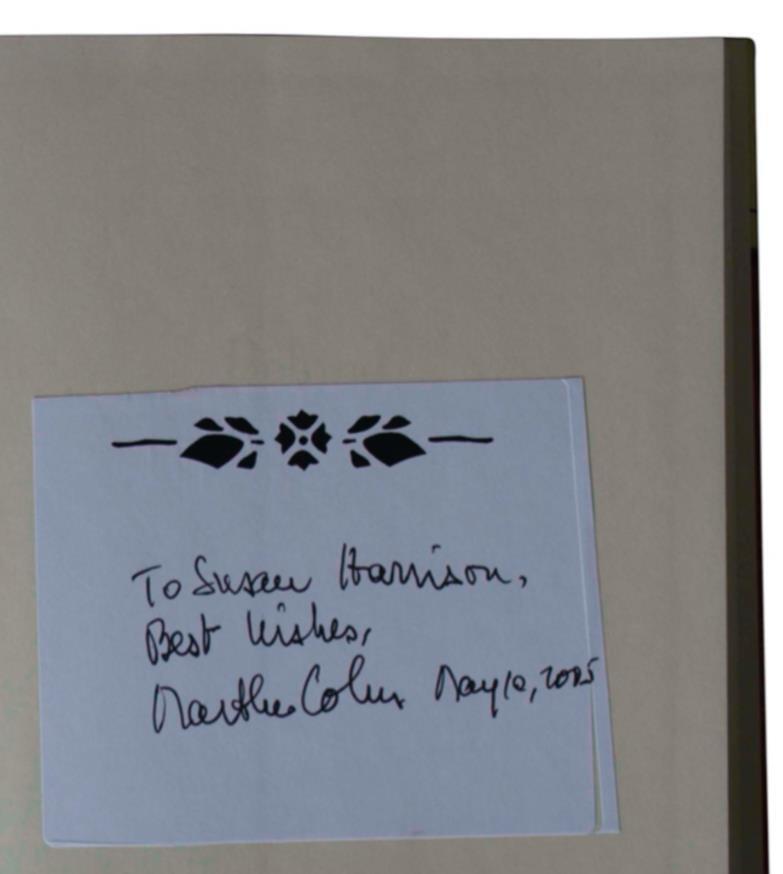 To Susan Harrison,
Best Wishes,
Marthe Cohn May 10, 2005